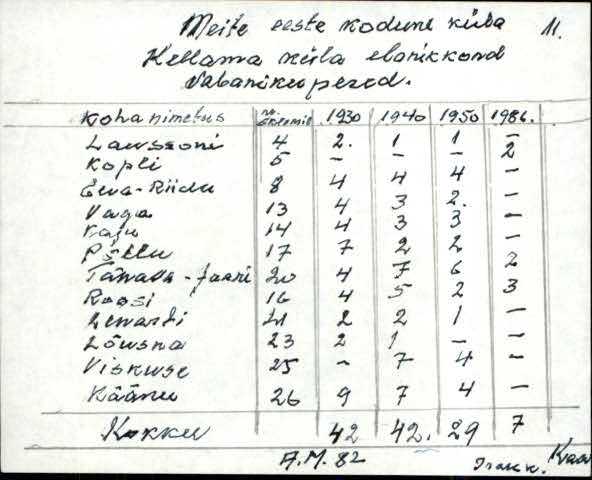 Meite eeste kodune küla 11.
Hellama küla elanikkond
Vabanikuperod.
Kohanimetus nr. skeemil 1930 1940 1950 1986.
Laussoni 4 2. 1 1 –
Kopli 5 – – – 2
Ewa-Riidu 8 4 4 4 –
Vaga 13 4 3 2. –
Kaju 14 4 3 3 –
Põllu 17 7 2 2 –
Tänava-Jaani 20 4 7 6 2
Roosi 16 4 5 2 3
21 2 2 1 –
Lõwsna 23 2 1 – –
Viskuse 25 – 7 4 –
Käänu 26 9 7 4 –
Kokku 42 42. 29 7
A.M. 82